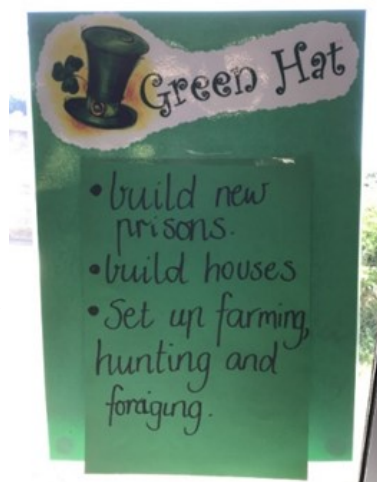 Green Hat
• build new
prisons.
• build houses
• Set up farming,
hunting and
foraging.